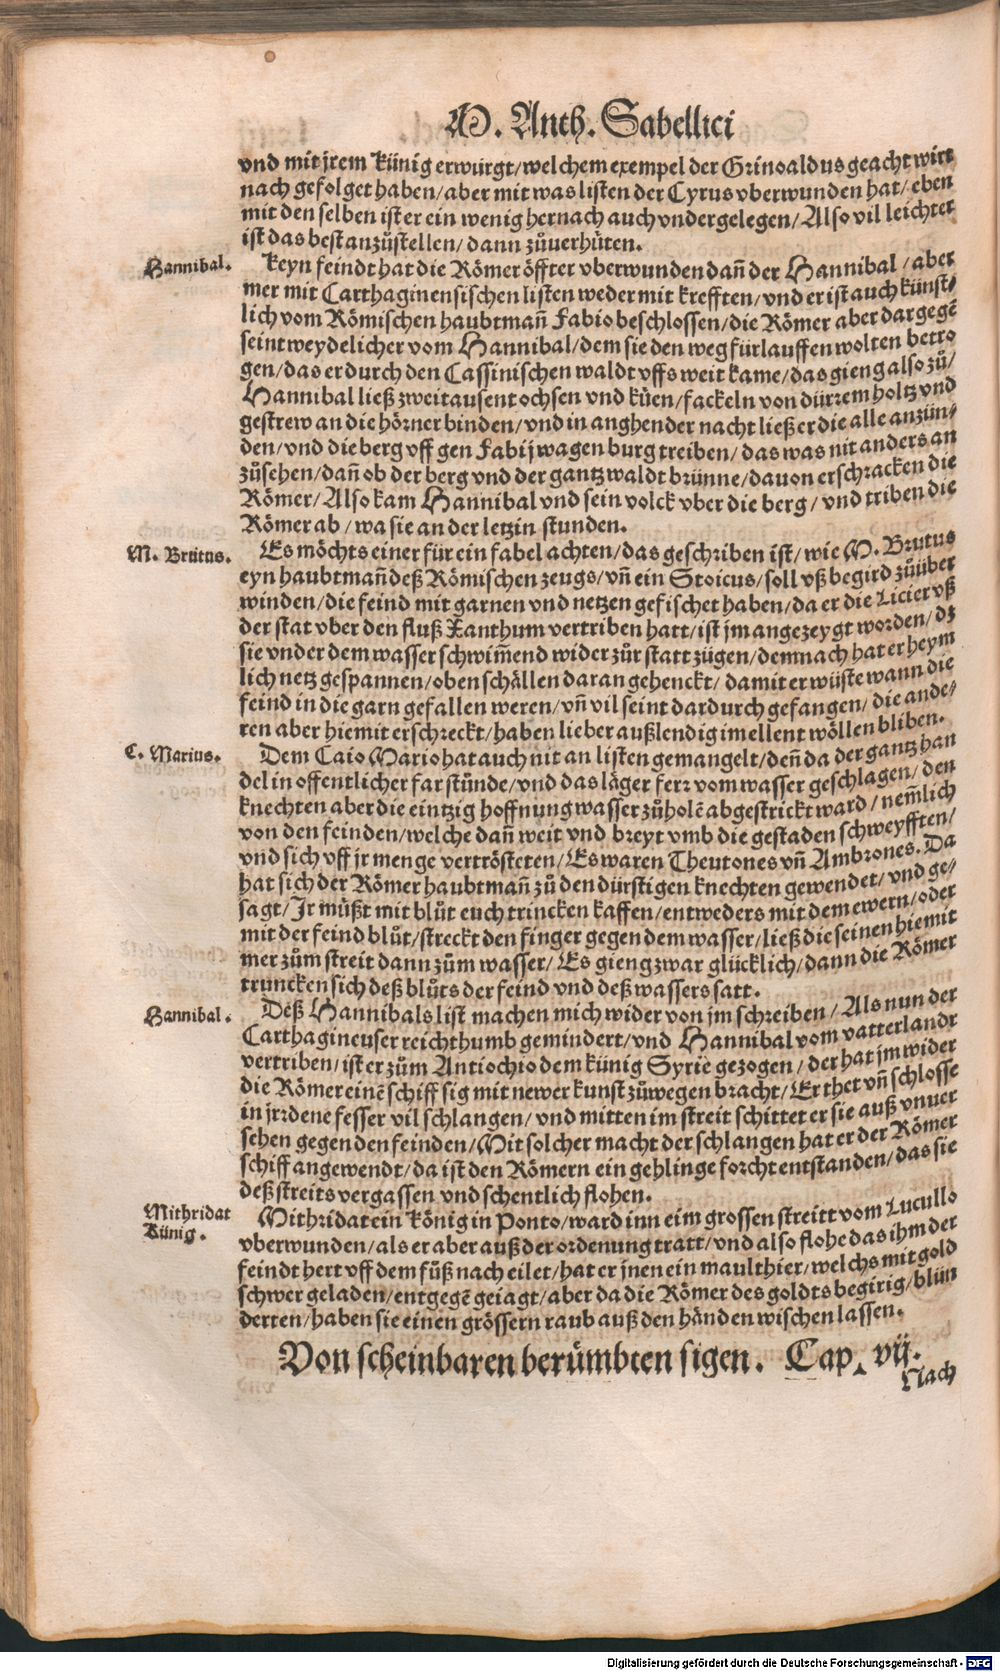 M. Anth. Sabellici
vnd mit jrem künig erwürgt/welchem exempel der Grinoaldus geacht wirt
nach gefolget haben/aber mit was listen der Cyrus vberwunden hat/eben
mit den selben ist er ein wenig hernach auch vndergelegen/Also vil leichter
ist das best anzůstellen/dann zůuerhüten.
Hannibal.
Keyn feindt hat die Römer öffter vberwunden dañ der Hannibal/aber
mer mit Carthaginensischen listen weder mit krefften/vnd er ist auch künst⸗
lich vom Römischen haubtmañ Fabio beschlossen/die Römer aber dargegē
seint weydelicher vom Hannibal/dem sie den weg fürlauffen wolten betro
gen/das er durch den Cassinischen waldt vffs weit kame/das gieng also zů/
Hannibal ließ zweitausent ochsen vnd küen/fackeln von dürrem holtz vnd
gestrew an die hörner binden/vnd in anghender nacht ließ er die alle anzün⸗
den/vnd die berg vff gen Fabij wagenburg treiben/das was nit anders an
zůsehen/dañ ob der berg vnd der gantz waldt brünne/dauon erschracken die
Römer/Also kam Hannibal vnd sein volck vber die berg/vnd triben die
Römer ab/wa sie an der letzin stunden.
M. Brutus.
Es möchts einer für ein fabel achten/das geschriben ist/wie M. Brutus
eyn haubtmañ deß Römischen zeugs/vñ ein Stoicus/soll vß begird zůüber
winden/die feind mit garnen vnd netzen gefischet haben/da er die Licier vß
der stat vber den fluß Xanthum vertriben hatt/ist jm angezeygt worden/dz
sie vnder dem wasser schwim̃end wider zůr statt zügen/demnach hat er heym
lich netz gespannen/oben schällen daran gehenckt/damit er wüste wann die
feind in die garn gefallen weren/vñ vil seint dardurch gefangen/die ande⸗
ren aber hiemit erschreckt/haben lieber außlendig im ellent wöllen bliben.
C. Marius.
Dem Caio Mario hat auch nit an listen gemangelt/deñ da der gantz han
del in offentlicher far stünde/vnd das läger ferr vom wasser geschlagen/den
knechten aber die eintzig hoffnung wasser zůholē abgestrickt ward/nem̃lich
von den feinden/welche dañ weit vnd breyt vmb die gestaden schweyfften/
vnd sich vff jr menge vertrösteten/Es waren Theutones vñ Ambrones. Da
hat sich der Römer haubtmañ zů den dürstigen knechten gewendet/vnd ge⸗
sagt/Jr müßt mit blůt euch trincken kaffen/entweders mit dem ewern/oder
mit der feind blůt/streckt den finger gegen dem wasser/ließ die seinen hiemit
mer zům streit dann zům wasser/Es gieng zwar glücklich/dann die Römer
truncken sich deß blůts der feind vnd deß wassers satt.
Hannibal.
Deß Hannibals list machen mich wider von jm schreiben/Als nun der
Carthagineuser reichthumb gemindert/vnd Hannibal vom vatterlandt
vertriben/ist er zům Antiochio dem künig Syrie gezogen/der hat jm wider
die Römer einē schiff sig mit newer kunst zůwegen bracht/Er thet vñ schlosse
in jrrdene fesser vil schlangen/vnd mitten im streit schittet er sie auß vnuer
sehen gegen den feinden/Mit solcher macht der schlangen hat er der Römer
schiff angewendt/da ist den Römern ein gehlinge forcht entstanden/das sie
deß streits vergassen vnd schentlich flohen.
Mithridat
Künig.
Mithridat ein König in Ponto/ward inn eim grossen streitt vom Lucullo
vberwunden/als er aber auß der ordenung tratt/vnd also flohe das ihm der
feindt hert vff dem fůß nach eilet/hat er jnen ein maulthier/welchs mit gold
schwer geladen/entgegē geiagt/aber da die Römer des goldts begirig/blün
derten/haben sie einen grössern raub auß den händen wischen lassen.
Von scheinbaren berümbten sigen. Cap. vij.
Nach
Digitalisierung gefördert durch die Deutsche Forschungsgemeinschaft - DFG